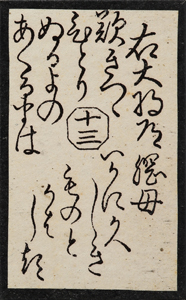 右大将道綱母
歎きつゝ
ひとり
ぬるよの
あくるまは
十三
いかに久
しき
ものと
かは
しる